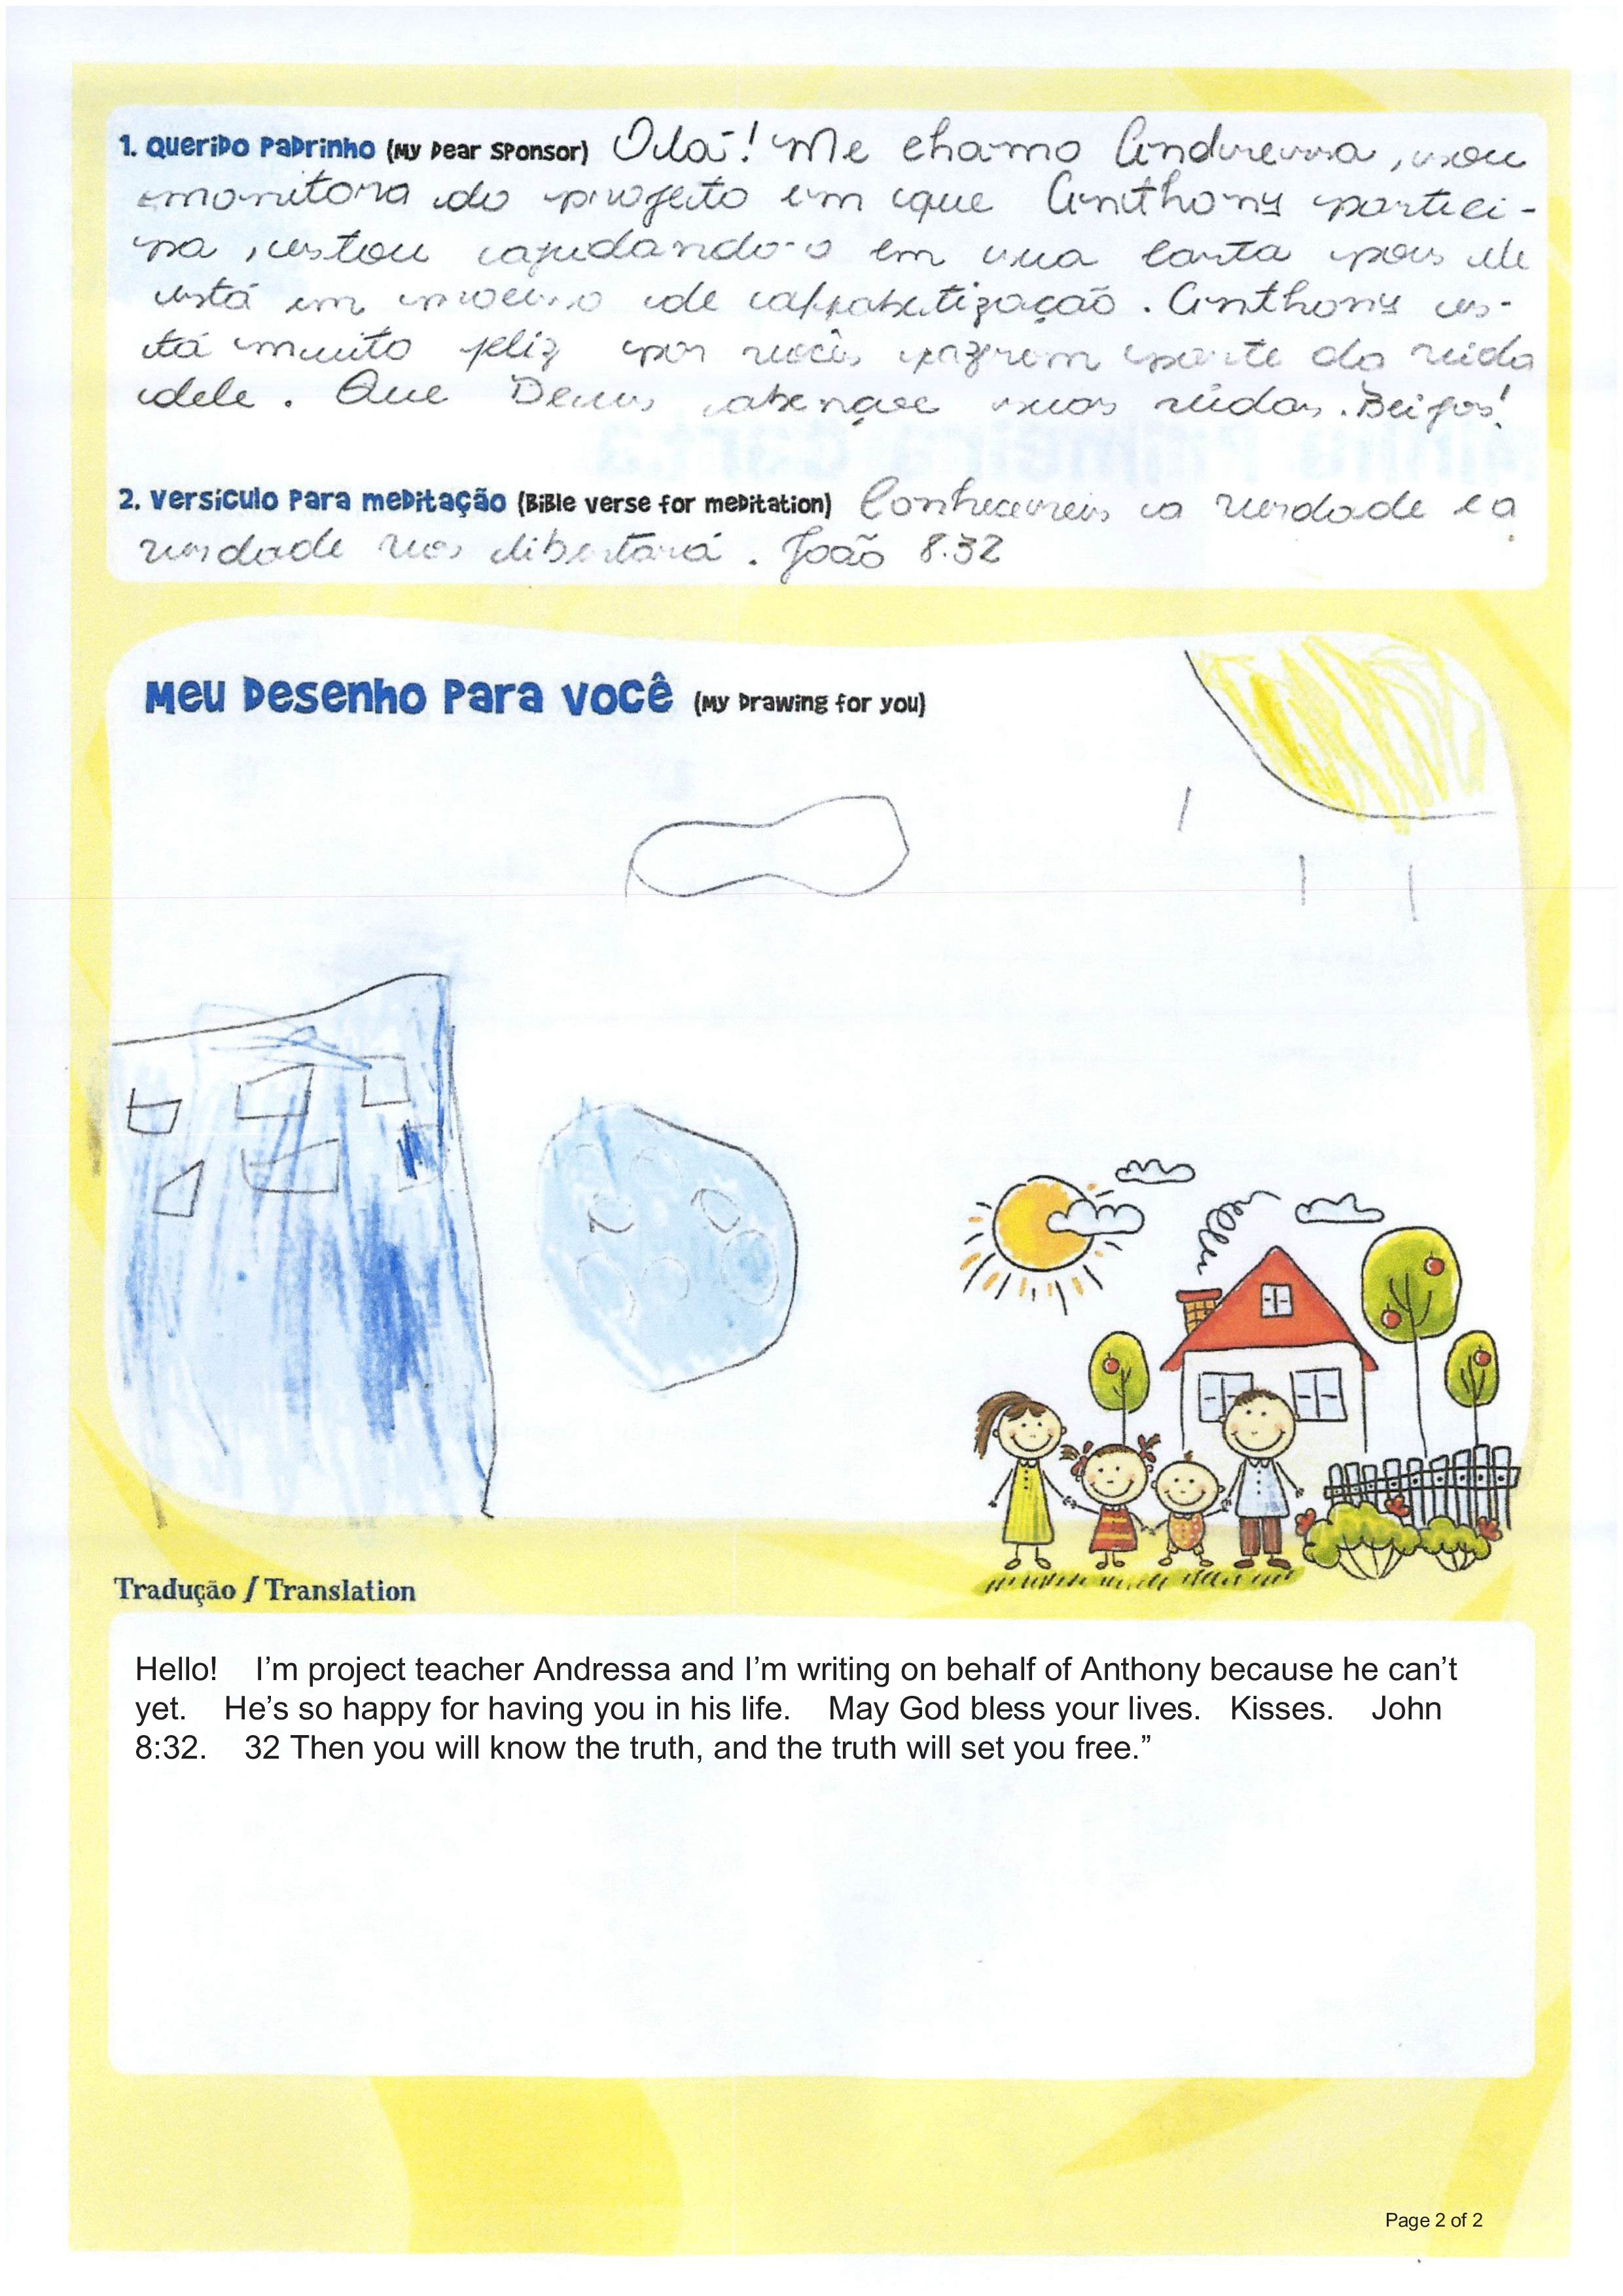 1. Querido Padrinho (My Dear Sponsor) Olá! Me chamo Andressa, sou
monitora do projeto em que Anthony partici-
pa, estou ajudando-o em sua carta pois ele
está em processo de alfabetização. Anthony es-
tá muito feliz por vocês fazerem parte da vida
dele. Que Deus abençoe suas vidas. Beijos!
2. Versículo para meditação (Bible verse for meditation) Conhecereis a verdade e a
verdade vos libertará. João 8.32
Meu Desenho Para Você (My Drawing for you)
Tradução / Translation
Hello! I’m project teacher Andressa and I’m writing on behalf of Anthony because he can’t
yet. He’s so happy for having you in his life. May God bless your lives. Kisses. John
8:32. 32 Then you will know the truth, and the truth will set you free.”
Page 2 of 2